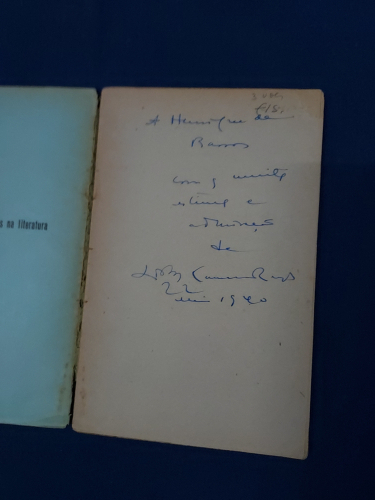 s na literatura
3 vols.
A Henrique de
Barros
com a muita
estima e
admiração
de
22
1940